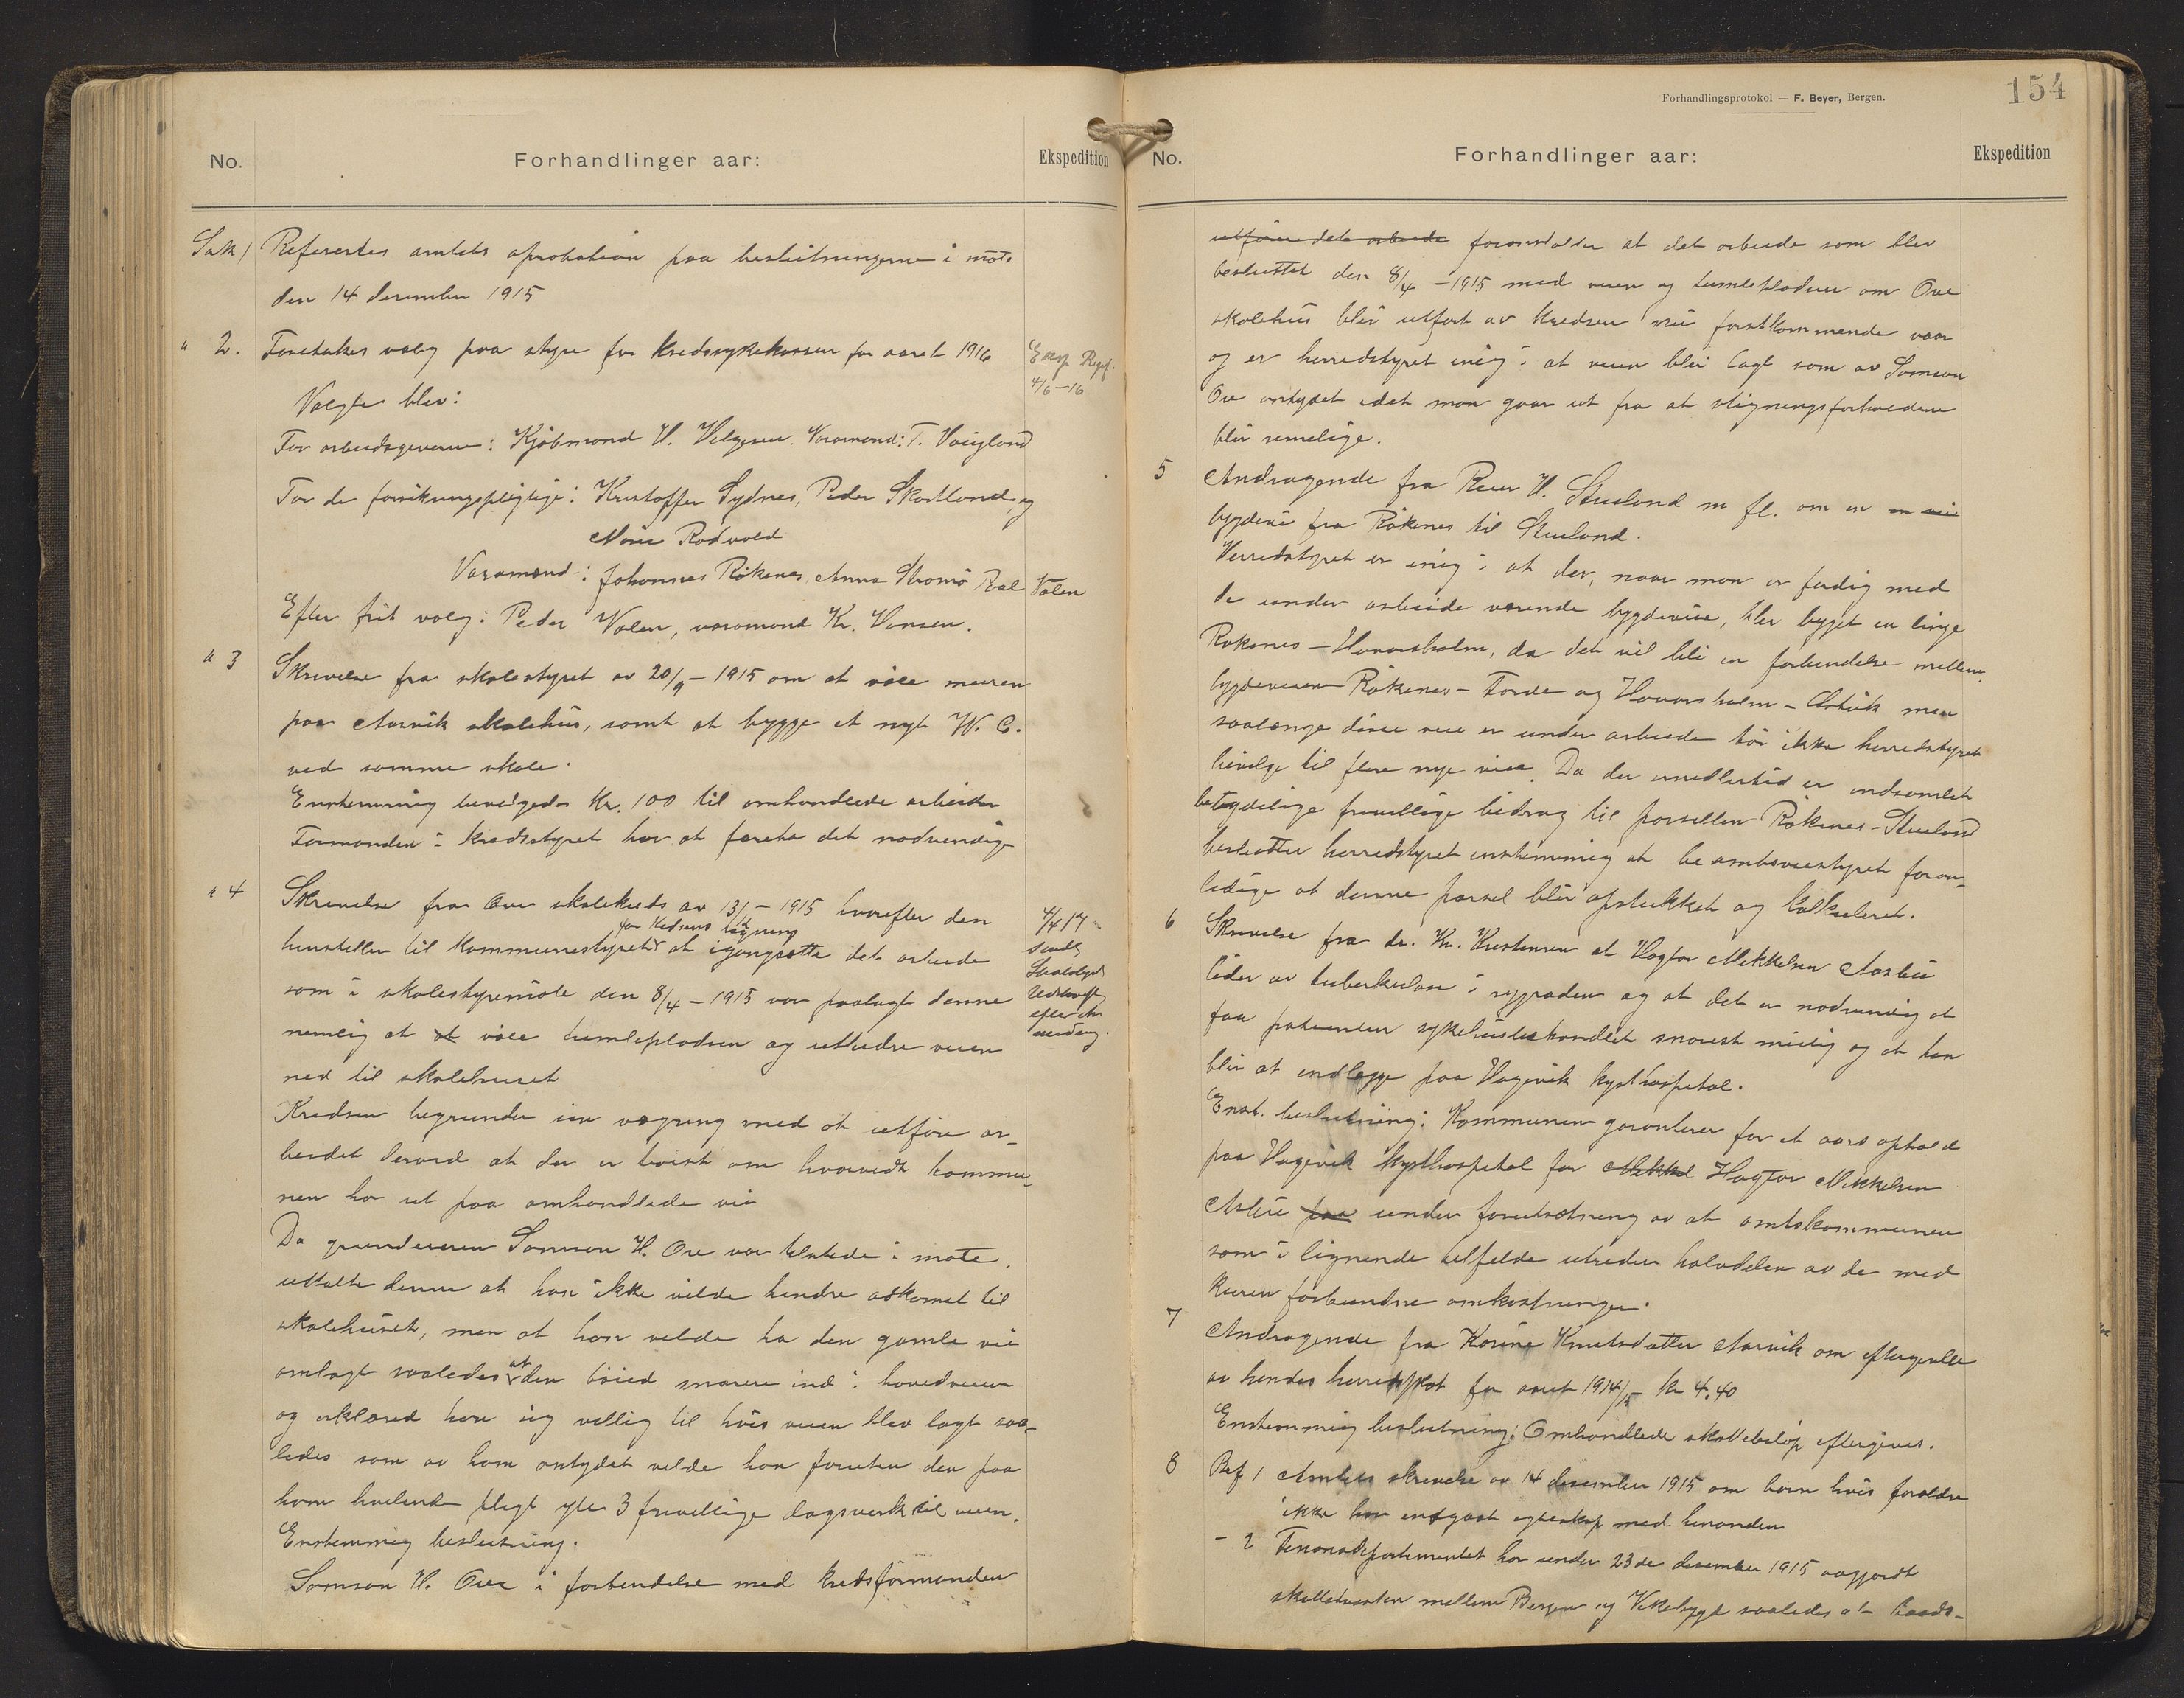 No.
Forhandlinger aar:
Ekspedition
Sak 1 Referertes amtets aprobation paa beslutningerne i møte
den 14 desember 1915
" 2. Foretokes valg paa styre for kredssykekassen for aaret 1916
4/6-16
Valgte blev:
For arbeidsgiverne: Kjøbmand H. Helgesen. Varamand: T. Vaugland
For de forsikringspligtige: Kristoffer Sydnes, Peder Skartland, og
Marie Rødvald
Varamænd: Johannes Røkenes, Anna Strømø Valen
Efter frit valg: Peder Valen, varamand Kr. Hansen.
" 3 Skrivelse fra skolestyret av 20/9-1915 om at maale muren
paa Aarvik skolehus, samt at bygge et nyt W. C.
ved samme skole.
Enstemmig bevilgedes Kr. 100 til omhandlede arbeider
Formanden i kredsstyret har at foreta det nødvendige
" 4 Skrivelse fra Øvre skolekreds av 1915 hvorefter den
for Kredsens
henstiller til kommunestyret at igangsætte det arbeide
4/4 17
som i skolestyremøte den 8/4-1915 var paalagt denne
nemlig at tumlepladsen og utbedre veien
ned til skolehuset
Kredsen begrunder sin vægring med at utføre ar-
beidet derved at der er tvist om hvorvidt kommu-
nen har ret paa omhandlede vei
Da grundeieren Samson H. Øvre var tilstede i møte,
uttalte denne at han ikke vilde hindre adkomst til
skolehuset, men at han vilde ha den gamle vei
omlagt saaledes at den bøied snarere ind i hovedveien
og erklæred han sig villig til hvis veien blev lagt saa-
ledes som av ham antydet vilde han foruten den paa
ham hvilende pligt yte 3 frivillige dagsverk til veien.
Enstemmig beslutning.
Samson H. Øvre i forbindelse med kredsformanden
Forhandlingsprotokol — F. Beyer, Bergen.
154
No.
Forhandlinger aar:
Ekspedition
utføre det arbeide foranstalter at det arbeide som blev
besluttet den 8/4-1915 med veien og tumlepladsen om Øvre
skolehus blir utført av kredsen nu førstkommende vaar
og er herredstyret enig i at veien blir lagt som av Samson
Øvre antydet idet man gaar ut fra at stigningsforholdene
blir rimelige.
5 Andragende fra Peder H. Stueland m fl. om en
bygdevei fra Røkenes til Stueland.
Herredstyret er enig i at der, naar man er færdig med
de under arbeide værende bygdeveie, blir bygget en linje
Røkenes - Havarsholm, da det vil bli en forbindelse mellem
bygdeveien Røkenes - Førde og Havarsholm - men
saalænge disse veie er under arbeide tør ikke herredstyret
bevilge til flere nye veie. Da der imidlertid er indsamlet
betydelige frivillige bidrag til parsellen Røkenes - Stueland
beslutter herredstyret enstemmig at be amtsveistyret foran-
ledige at denne parsel blir opstukket og kalkuleret.
6 Skrivelse fra dr. Kr. Kristensen at Hagtor Mikkelsen Aasbø
lider av tuberkulose i rygraden og at det er nødvendig at
faa patienten sykehusbehandlet snarest mulig og at han
blir at indlægge paa Hagevik kysthospital.
Enst. beslutning: Kommunen garanterer for et aars ophold
paa Hagevik kysthospital for Mikkel Hagtor Mikkelsen
paa under forutsætning av at amtskommunen
som i lignende tilfælde utreder halvdelen av de med
kuren forbundne omkostninger.
7 Andragende fra Karine Knutsdatter Aarvik om eftergivelse
av hendes herredsskat for aaret 1914/15 kr 4,40
Enstemmig beslutning: Omhandlede skattebeløp eftergives.
8 Ref. 1 Amtets skrivelse av 14 desember 1915 om barn hvis forældre
ikke har indgaat egteskap med hinanden
- 2 Finansdepartementet har under 23de desember 1915 avgjordt
skattetvisten mellem Bergen og Vikebygd saaledes at